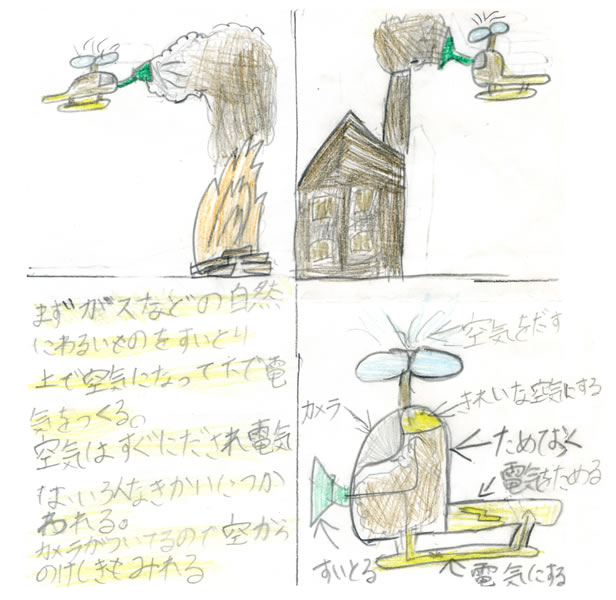 まずガスなどの自然
にわるいものをすいとり
上で空気になって下で電
気をつくる。
空気はすぐにだされ電気
はいろんなきかいにつか
われる。
カメラがついてるので空から
のけしきもみれる
空気をだす
カメラ
きれいな空気にする
ためておく
電気をためる
すいとる
電気にする